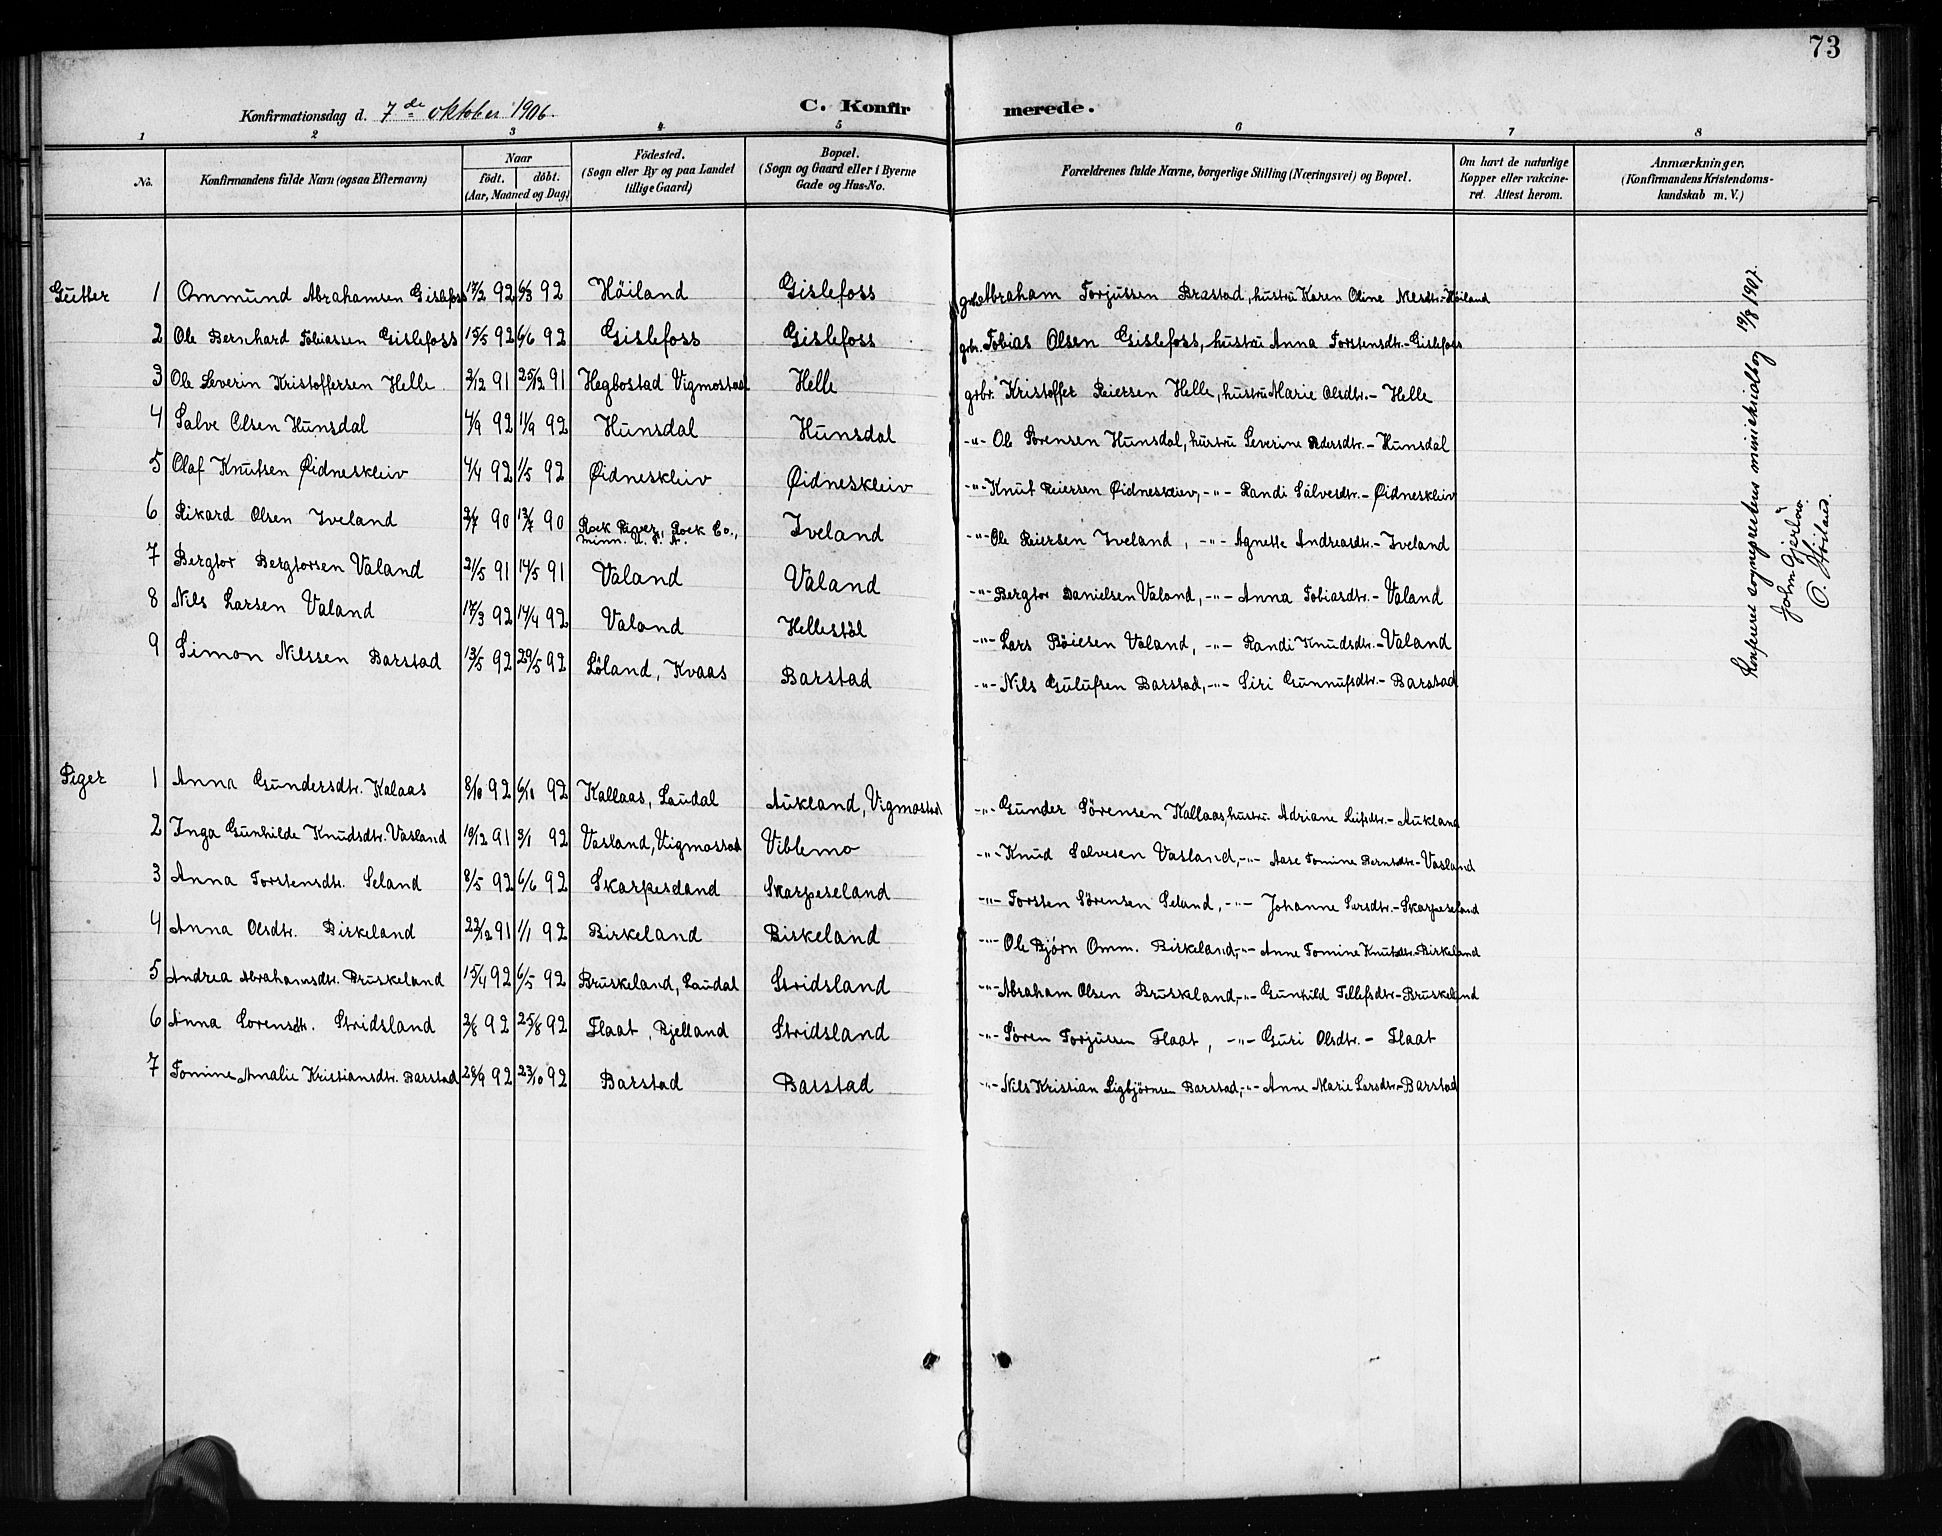 73
Konfirmationsdag d. 7de oktober 1906.
C. Konfirmerede.
1 2 3 4 5 6 7 8
No.
Konfirmandens fulde Navn (ogsaa Efternavn)
Naar
födt. döbt.
(Aar, Maaned og Dag)
Födested.
(Sogn eller By og paa Landet
tillige Gaard)
Bopæl.
(Sogn og Gaard eller i Byerne
Gade og Hus-No.
Forældrenes fulde Navne, borgerlige Stilling (Næringsvei) og Bopæl.
Om havt de naturlige
Kopper eller vakcine-
ret. Attest herom.
Anmærkninger.
(Konfirmandens Kristendoms-
kundskab m. V.)
Gutter 1 Ommund Abrahamsen Gislefoss 17/2 92 6/3 92 Höiland Gislefoss Abraham Torjussen Brastad, hustru Karen Oline Nilsdtr.-Höiland
2 Ole Bernhard Tobiassen Gislefoss 15/5 92 6/6 92 Gislefoss Gislefoss grbr. Tobias Olsen Gislefoss, hustru Anna Torstensdtr.-Gislefoss
3 Ole Severin Kristoffersen Helle 2/12 91 25/12 91 Hegbostad Vigmostad Helle grbr. Kristoffer Reiersen Helle, hustru Marie Olsdtr.- Helle
4 Salve Olsen Hunsdal 4/9 92 11/9 92 Hunsdal Hunsdal -"- Ole Sörensen Hunsdal, hustru Severine Pedersdtr.- Hunsdal
5 Olaf Knutsen Øidneskleiv 4/4 92 1/5 92 Øidneskleiv Øidneskleiv -"- Knut Reiersen Øidneskleiv, -"- Randi Salvesdtr.- Øidneskleiv
6 Rikard Olsen Iveland 2/7 90 13/7 90 Rock River, Rock Co., Minn. U. S. A. Iveland -"- Ole Reiersen Iveland, -"- Agnette Andreasdtr.- Iveland
7 Bergtor Bergtorsen Valand 21/5 91 14/5 91 Valand Valand -"- Bergtor Danielsen Valand, -"- Anna Tobiasdtr.- Valand
8 Nils Larsen Valand 17/3 92 14/4 92 Valand Hellestöl -"- Lars Böiesen Valand, -"- Randi Knudsdtr.- Valand
9 Simon Nilssen Barstad 13/5 92 29/5 92 Löland, Kvaas Barstad -"- Nils Gulufsen Barstad, -"- Siri Gunnufsdtr.- Barstad
Piger 1 Anna Gundersdtr. Kalaas 8/10 92 6/11 92 Kallaas, Laudal Aukland, Vigmostad -"- Gunder Sörensen Kallaas, hustru Adriane Leifsdtr.- Aukland
2 Inga Gunhilde Knudsdtr. Vasland 19/12 91 3/1 92 Vasland, Vigmostad Viblemo -"- Knud Salvesen Vasland, -"- Aase Tomine Berntsdtr.- Vasland
3 Anna Torstensdtr. Seland 8/5 92 6/6 92 Skarpesland Skarpeseland -"- Torsten Sörensen Seland, -"- Johanne Larsdtr.- Skarpeseland
4 Anna Olsdtr. Birkeland 22/12 91 1/1 92 Birkeland Birkeland -"- Ole Bjørn Omm. Birkeland, -"- Anne Tomine Knutsdtr. Birkeland
5 Andrea Abrahamsdtr. Bruskeland 15/4 92 6/5 92 Bruskeland, Laudal Stridsland -"- Abraham Olsen Bruskland, -"- Gunhild Tellefsdtr.- Bruskeland
6 Anna Sorensdtr. Stridsland 2/8 92 25/8 92 Flaat, Bjelland Stridsland -"- Sören Torjussen Flaat, -"- Guri Olsdtr.- Flaat
7 Tomine Amalie Kristiansdtr. Barstad 28/9 92 23/10 92 Barstad Barstad -"- Nils Kristian Sigbjörnsen Barstad, -"- Anne Marie Larsdtr.- Barstad
Konfereret sogneprestens ministerialbog 19/8 1907.
John Gjerlöw
O. Höiland.